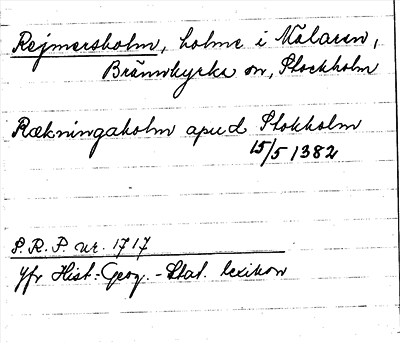 Rejmersholm, holme i Mälaren,
Brännkyrka sn, Stockholm
Rækningaholm apud Stokholm
15/5 1382
S.R.P. nr. 1717
Jfr Hist.-Geog.-Stat. lexikon